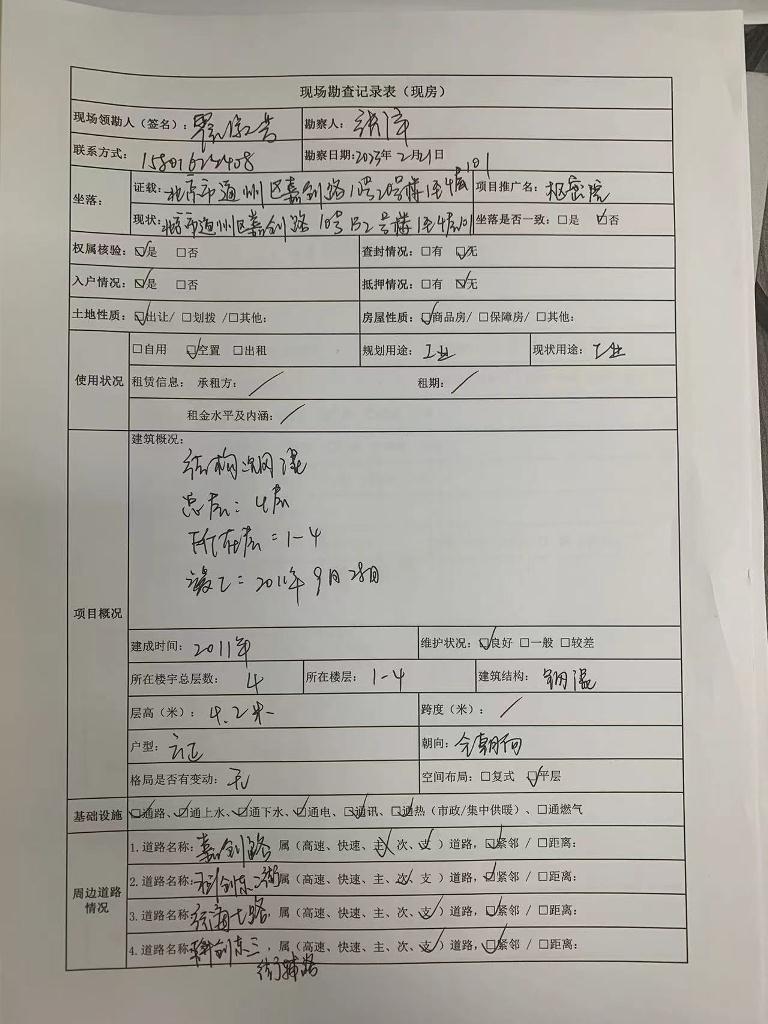 现场勘查记录表（现房）
现场领勘人（签名）： 勘察人：
联系方式： 勘察日期:2023年2月21日
坐落： 证载：北京市通州区嘉创路10号20号楼1至4层101 项目推广名：枢密院
现状：北京市通州区嘉创路10号B2号楼1至4层101 坐落是否一致：□是 ☑否
权属核验：☑是 □否 查封情况：□有 ☑无
入户情况：☑是 □否 抵押情况：□有 ☑无
土地性质：☑出让/ □划拨 /□其他: 房屋性质：☑商品房/ □保障房/ □其他:
使用状况 □自用 ☑空置 □出租 规划用途：工业 现状用途：工业
租赁信息： 承租方： / 租期： /
租金水平及内涵： /
项目概况 建筑概况：
结构:钢混
总层：4层
所在层：1-4
竣工：2011年9月28日
建成时间：2011年 维护状况：☑良好 □一般 □较差
所在楼宇总层数：4 所在楼层：1-4 建筑结构：钢混
层高（米）：4.2米 跨度（米）： /
户型： 朝向：全朝向
格局是否有变动：无 空间布局：□复式 ☑平层
基础设施 ☑通路、☑通上水、☑通下水、☑通电、☑通讯、☑通热（市政/集中供暖）、□通燃气
周边道路情况 1.道路名称：嘉创路 属（高速、快速、主、次、支）道路，☑紧邻 / □距离:
2.道路名称：科创东二街 属（高速、快速、主、次、支）道路，☑紧邻 / □距离:
3.道路名称：七路 属（高速、快速、主、次、支）道路，☑紧邻 / □距离:
4.道路名称：科创东三街辅路，属（高速、快速、主、次、支）道路，☑紧邻 / □距离: